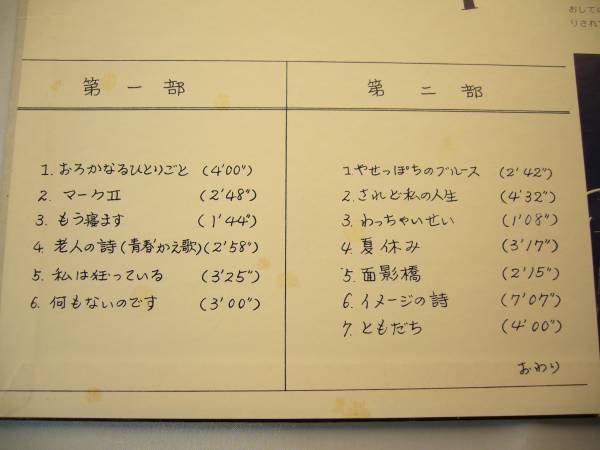 おして
りされて
第一部
1. おろかなるひとりごと (4'00")
2. マークⅡ (2'48")
3. もう寝ます (1'44")
4. 老人の詩(青春かえ歌)(2'58")
5. 私は狂っている (3'25")
6. 何もないのです (3'00")
第二部
1. やせっぽちのブルース (2'42")
2. されど私の人生 (4'32")
3. わっちゃいせい (1'08")
4. 夏休み (3'17")
5. 面影橋 (2'15")
6. イメージの詩 (7'07")
7. ともだち (4'00")
おわり